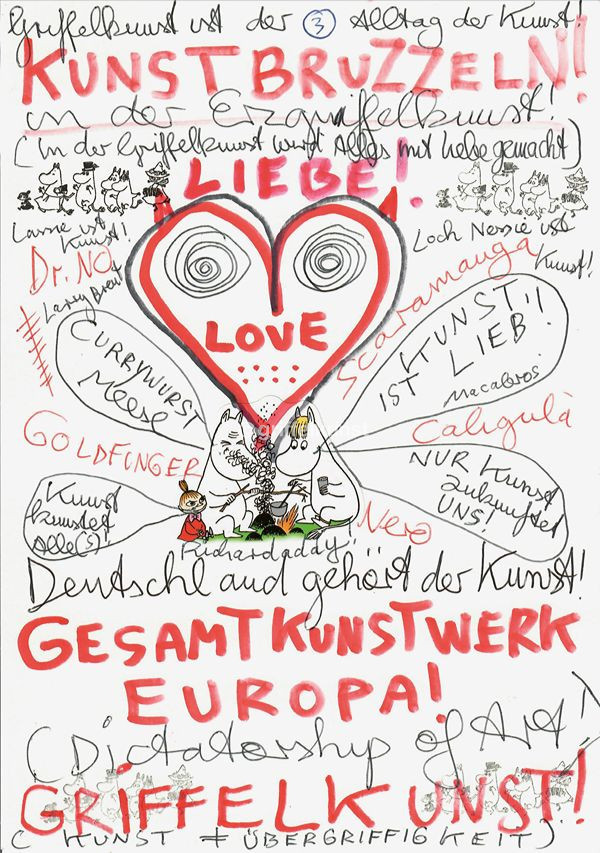 Griffelkunst ist der 3 Alltag der Kunst!
KUNSTBRUZZELN!
in der Erzgriffelkunst!
(In der Griffelkunst wird Alles mit Liebe gemacht)
LIEBE!
Lassie ist Kunst!
Loch Nessie ist Kunst!
Dr. NO
Larry Brent
Scaramanga
LOVE
CURRYWURST
Meese
KUNST
IST LIEB!!
Macabros
GOLDFINGER
Caligulà
Kunst
kunstet
Alle(s)!
NUR Kunst
zukunftet
UNS!
Nero
Richardaddy!
Deutschland gehört der Kunst!
GESAMTKUNSTWERK
EUROPA!
(Dictatorship of Art!)
GRIFFELKUNST!
(KUNST ≠ ÜBERGRIFFIGKEIT)